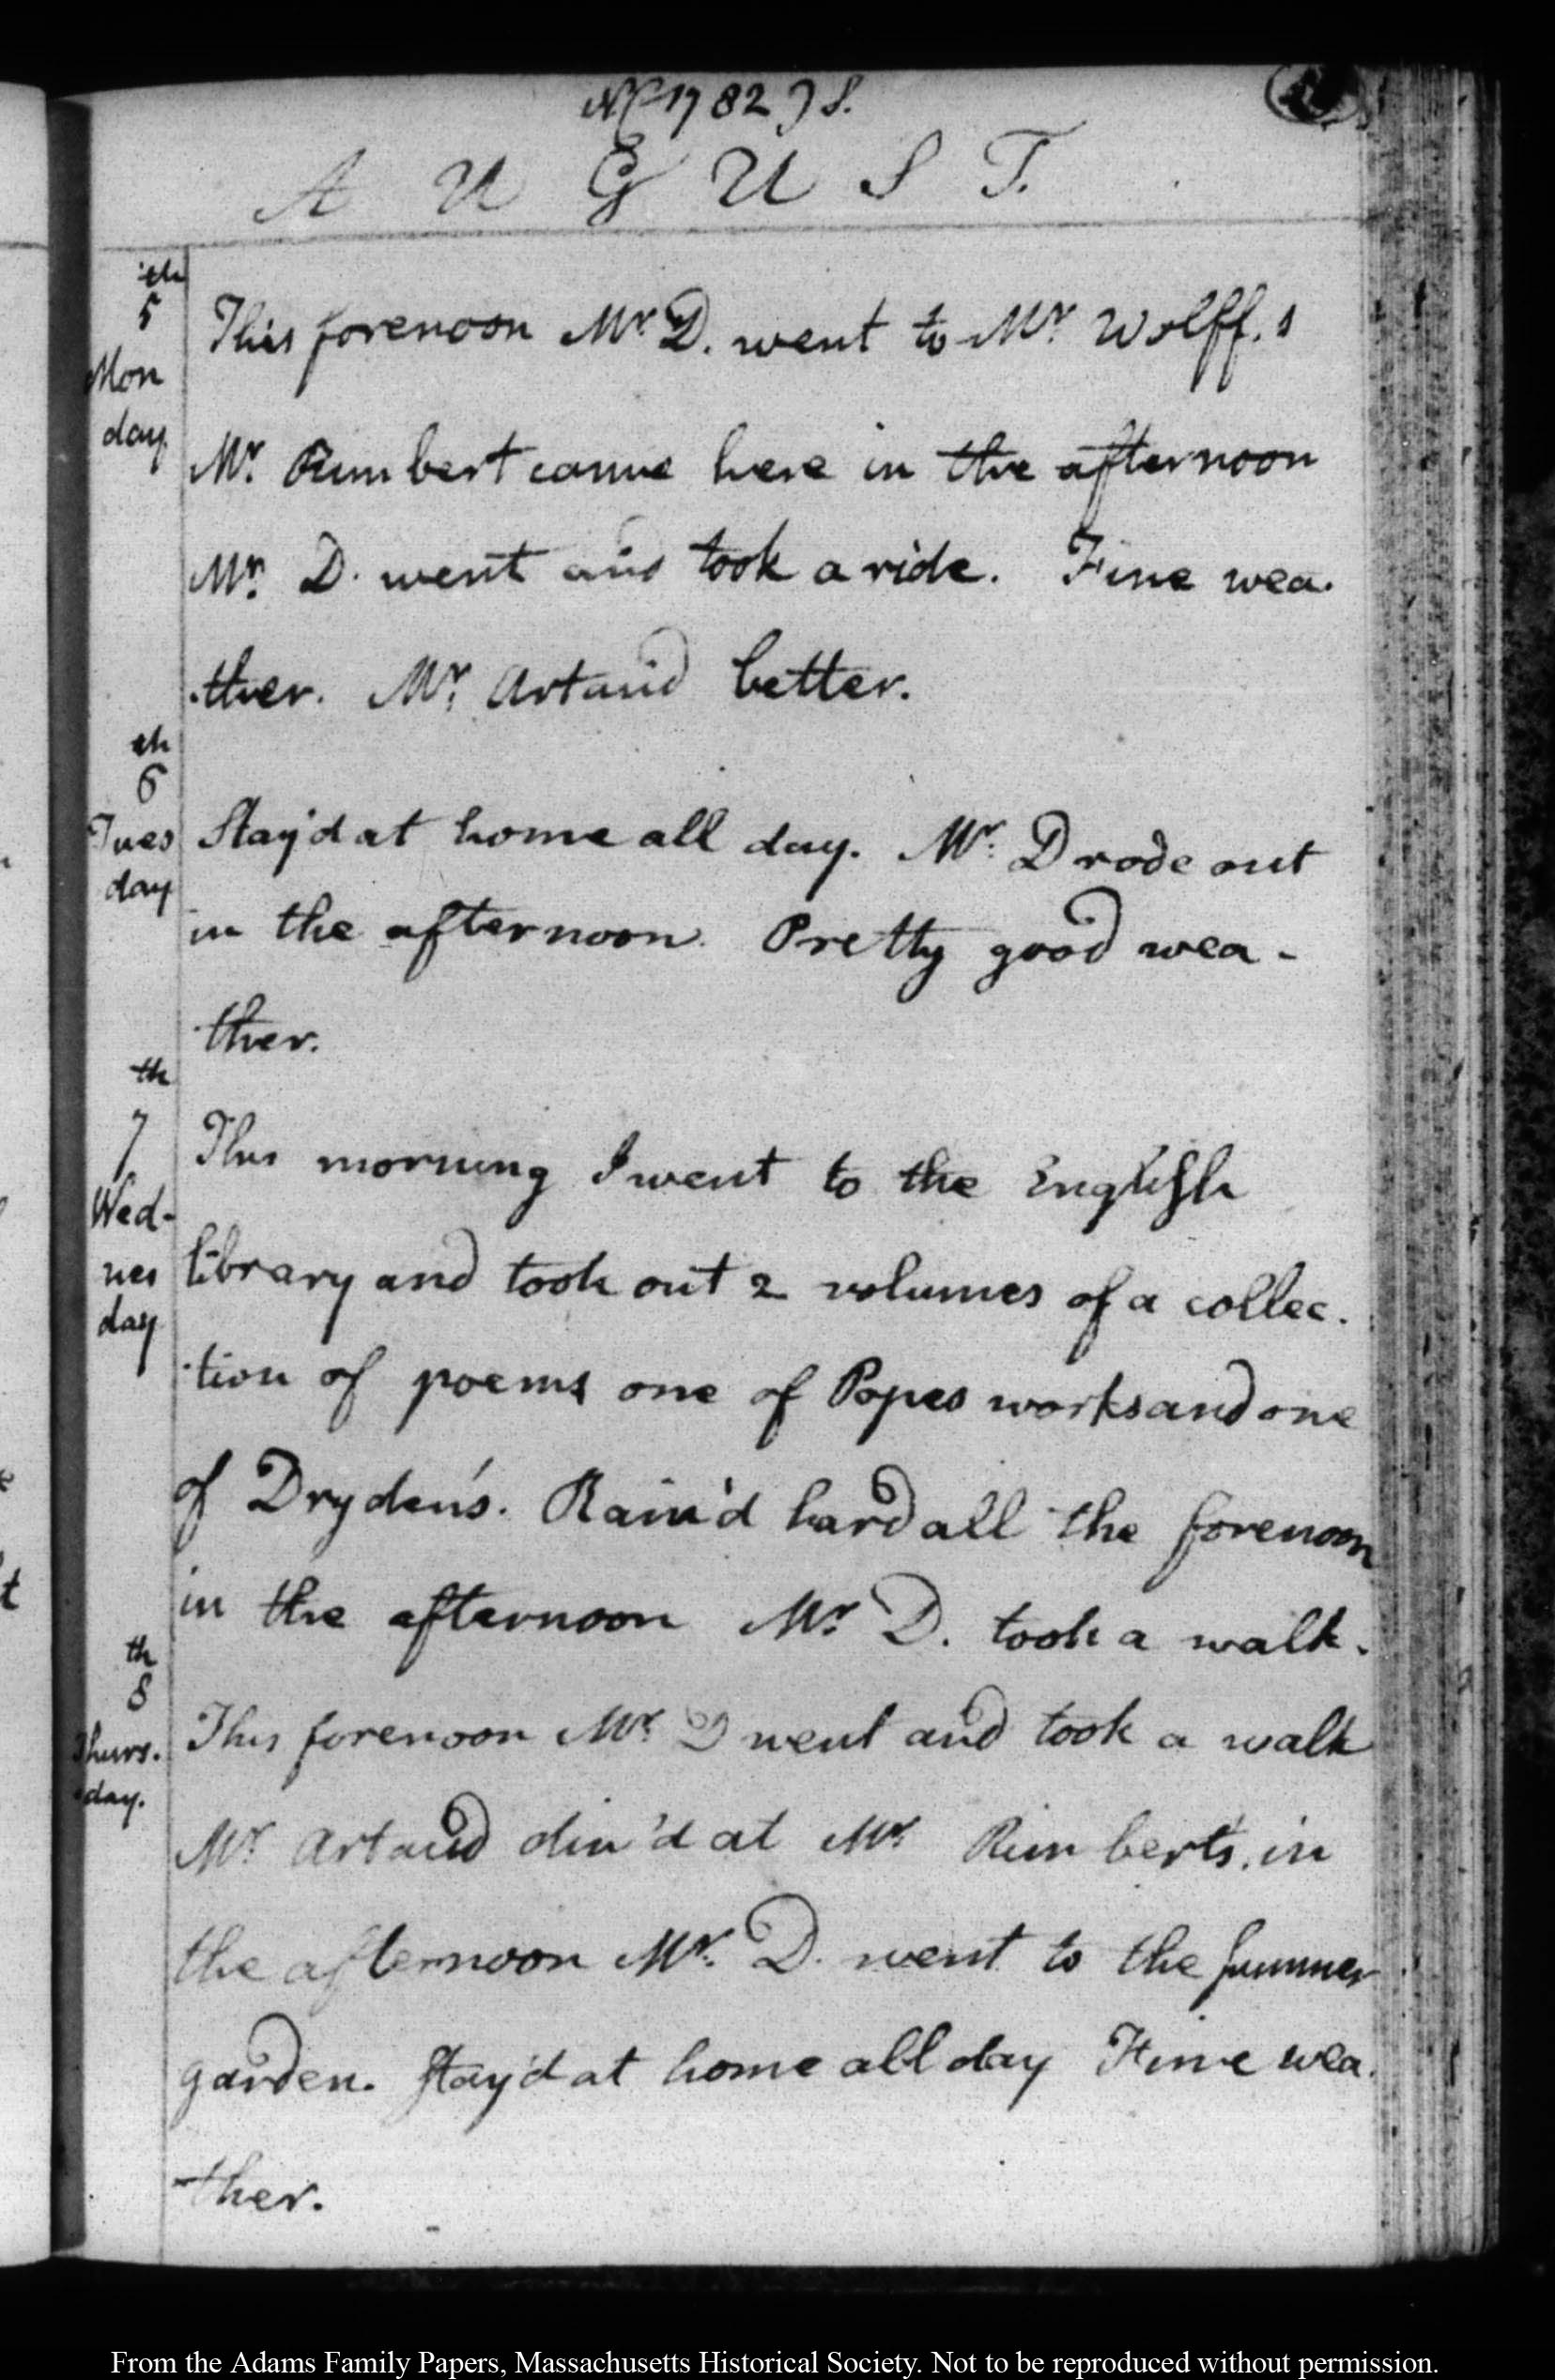 1782
A U G U S T.
th
5
Mon
day
This forenoon Mr. D. went to Mr. Wolff.s
Mr. Rimbert came here in the afternoon
Mr. D. went and took a ride. Fine wea.
ther. Mr. Artaud better.
th
6
Tues
day
Stay'd at home all day. Mr. D rode out
in the afternoon. Pretty good wea-
ther.
th
7
Wed-
nes
day
This morning I went to the English
library and took out 2 volumes of a collec.
tion of poems one of Popes works and one
of Dryden's. Rain'd hard all the forenoon
in the afternoon Mr. D. took a walk.
th
8
Thurs.
day.
This forenoon Mr. D went and took a walk
Mr. Artaud din'd at Mr. Rimbert's. in
the afternoon Mr. D. went to the summer
garden. stay'd at home all day Fine wea.
ther.
From the Adams Family Papers, Massachusetts Historical Society. Not to be reproduced without permission.